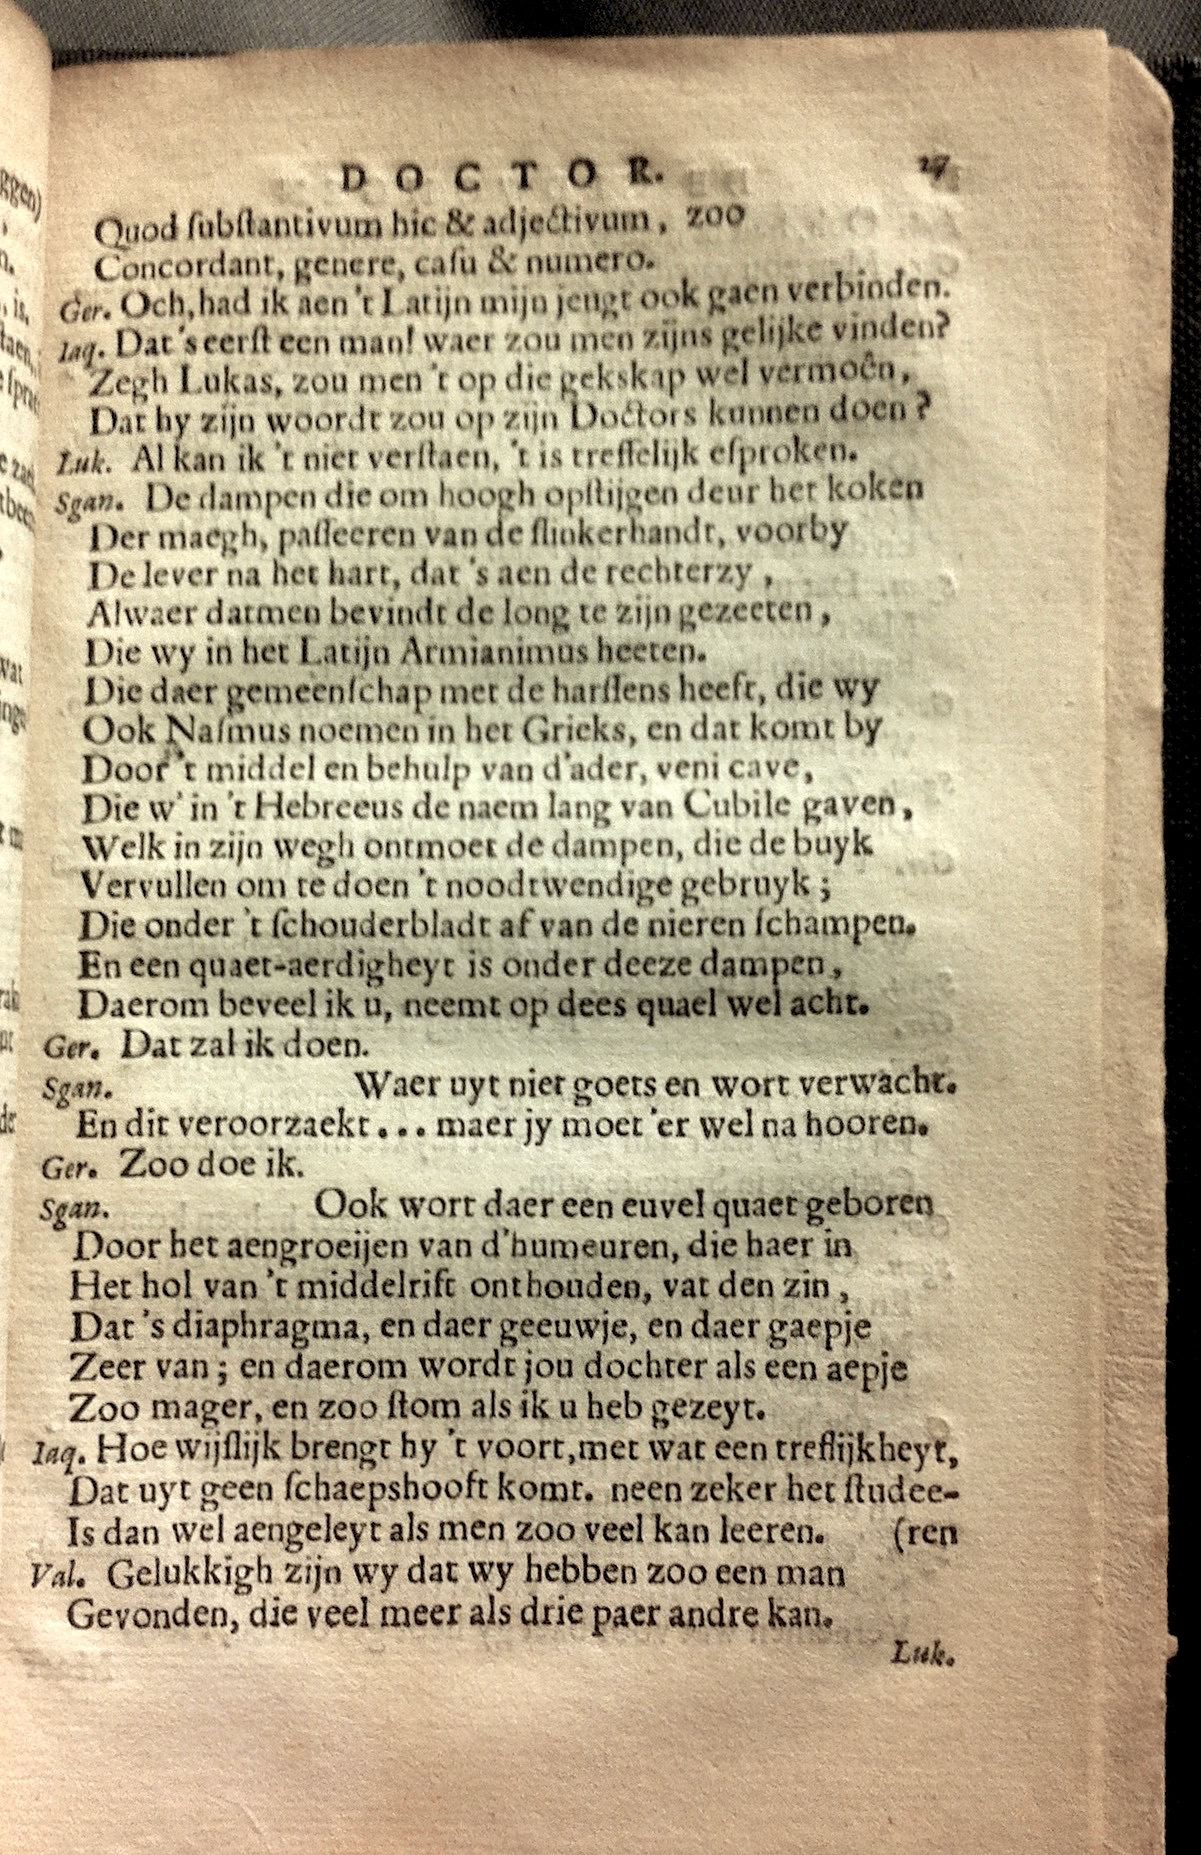 DOCTOR. 27
Quod ſubſtantivum hic & adjectivum, zoo
Concordant, genere, caſu & numero.
Ger. Och, had ik aen 't Latijn mijn jeugt ook gaen verbinden.
Iaq. Dat 's eerſt een man! waer zou men zijns gelijke vinden?
Zegh Lukas, zou men 't op die gekskap wel vermoên,
Dat hy zijn woordt zou op zijn Doctors kunnen doen?
Luk. Al kan ik 't niet verſtaen, 't is treffelijk eſproken.
Sgan. De dampen die om hoogh opſtijgen deur het koken
Der maegh, paſſeeren van de ſlinkerhandt, voorby
De lever na het hart, dat 's aen de rechterzy,
Alwaer datmen bevindt de long te zijn gezeeten,
Die wy in het Latijn Armianimus heeten.
Die daer gemeenſchap met de harſſens heeft, die wy
Ook Naſmus noemen in het Grieks, en dat komt by
Door 't middel en behulp van d'ader, veni cave,
Die w' in 't Hebreeus de naem lang van Cubile gaven,
Welk in zijn wegh ontmoet de dampen, die de buyk
Vervullen om te doen 't noodtwendige gebruyk;
Die onder 't ſchouderbladt af van de nieren ſchampen.
En een quaet-aerdigheyt is onder deeze dampen,
Daerom beveel ik u, neemt op dees quael wel acht.
Ger. Dat zal ik doen.
Sgan. Waer uyt niet goets en wort verwacht.
En dit veroorzaekt... maer jy moet 'er wel na hooren.
Ger. Zoo doe ik.
Sgan. Ook wort daer een euvel quaet geboren
Door het aengroeijen van d'humeuren, die haer in
Het hol van 't middelrift onthouden, vat den zin,
Dat 's diaphragma, en daer geeuwje, en daer gaepje
Zeer van; en daerom wordt jou dochter als een aepje
Zoo mager, en zoo ſtom als ik u heb gezeyt.
Iaq. Hoe wijſlijk brengt hy 't voort, met wat een treflijkheyt,
Dat uyt geen ſchaepshooft komt. neen zeker het ſtudee-
Is dan wel aengeleyt als men zoo veel kan leeren. (ren
Val. Gelukkigh zijn wy dat wy hebben zoo een man
Gevonden, die veel meer als drie paer andre kan.
Luk.